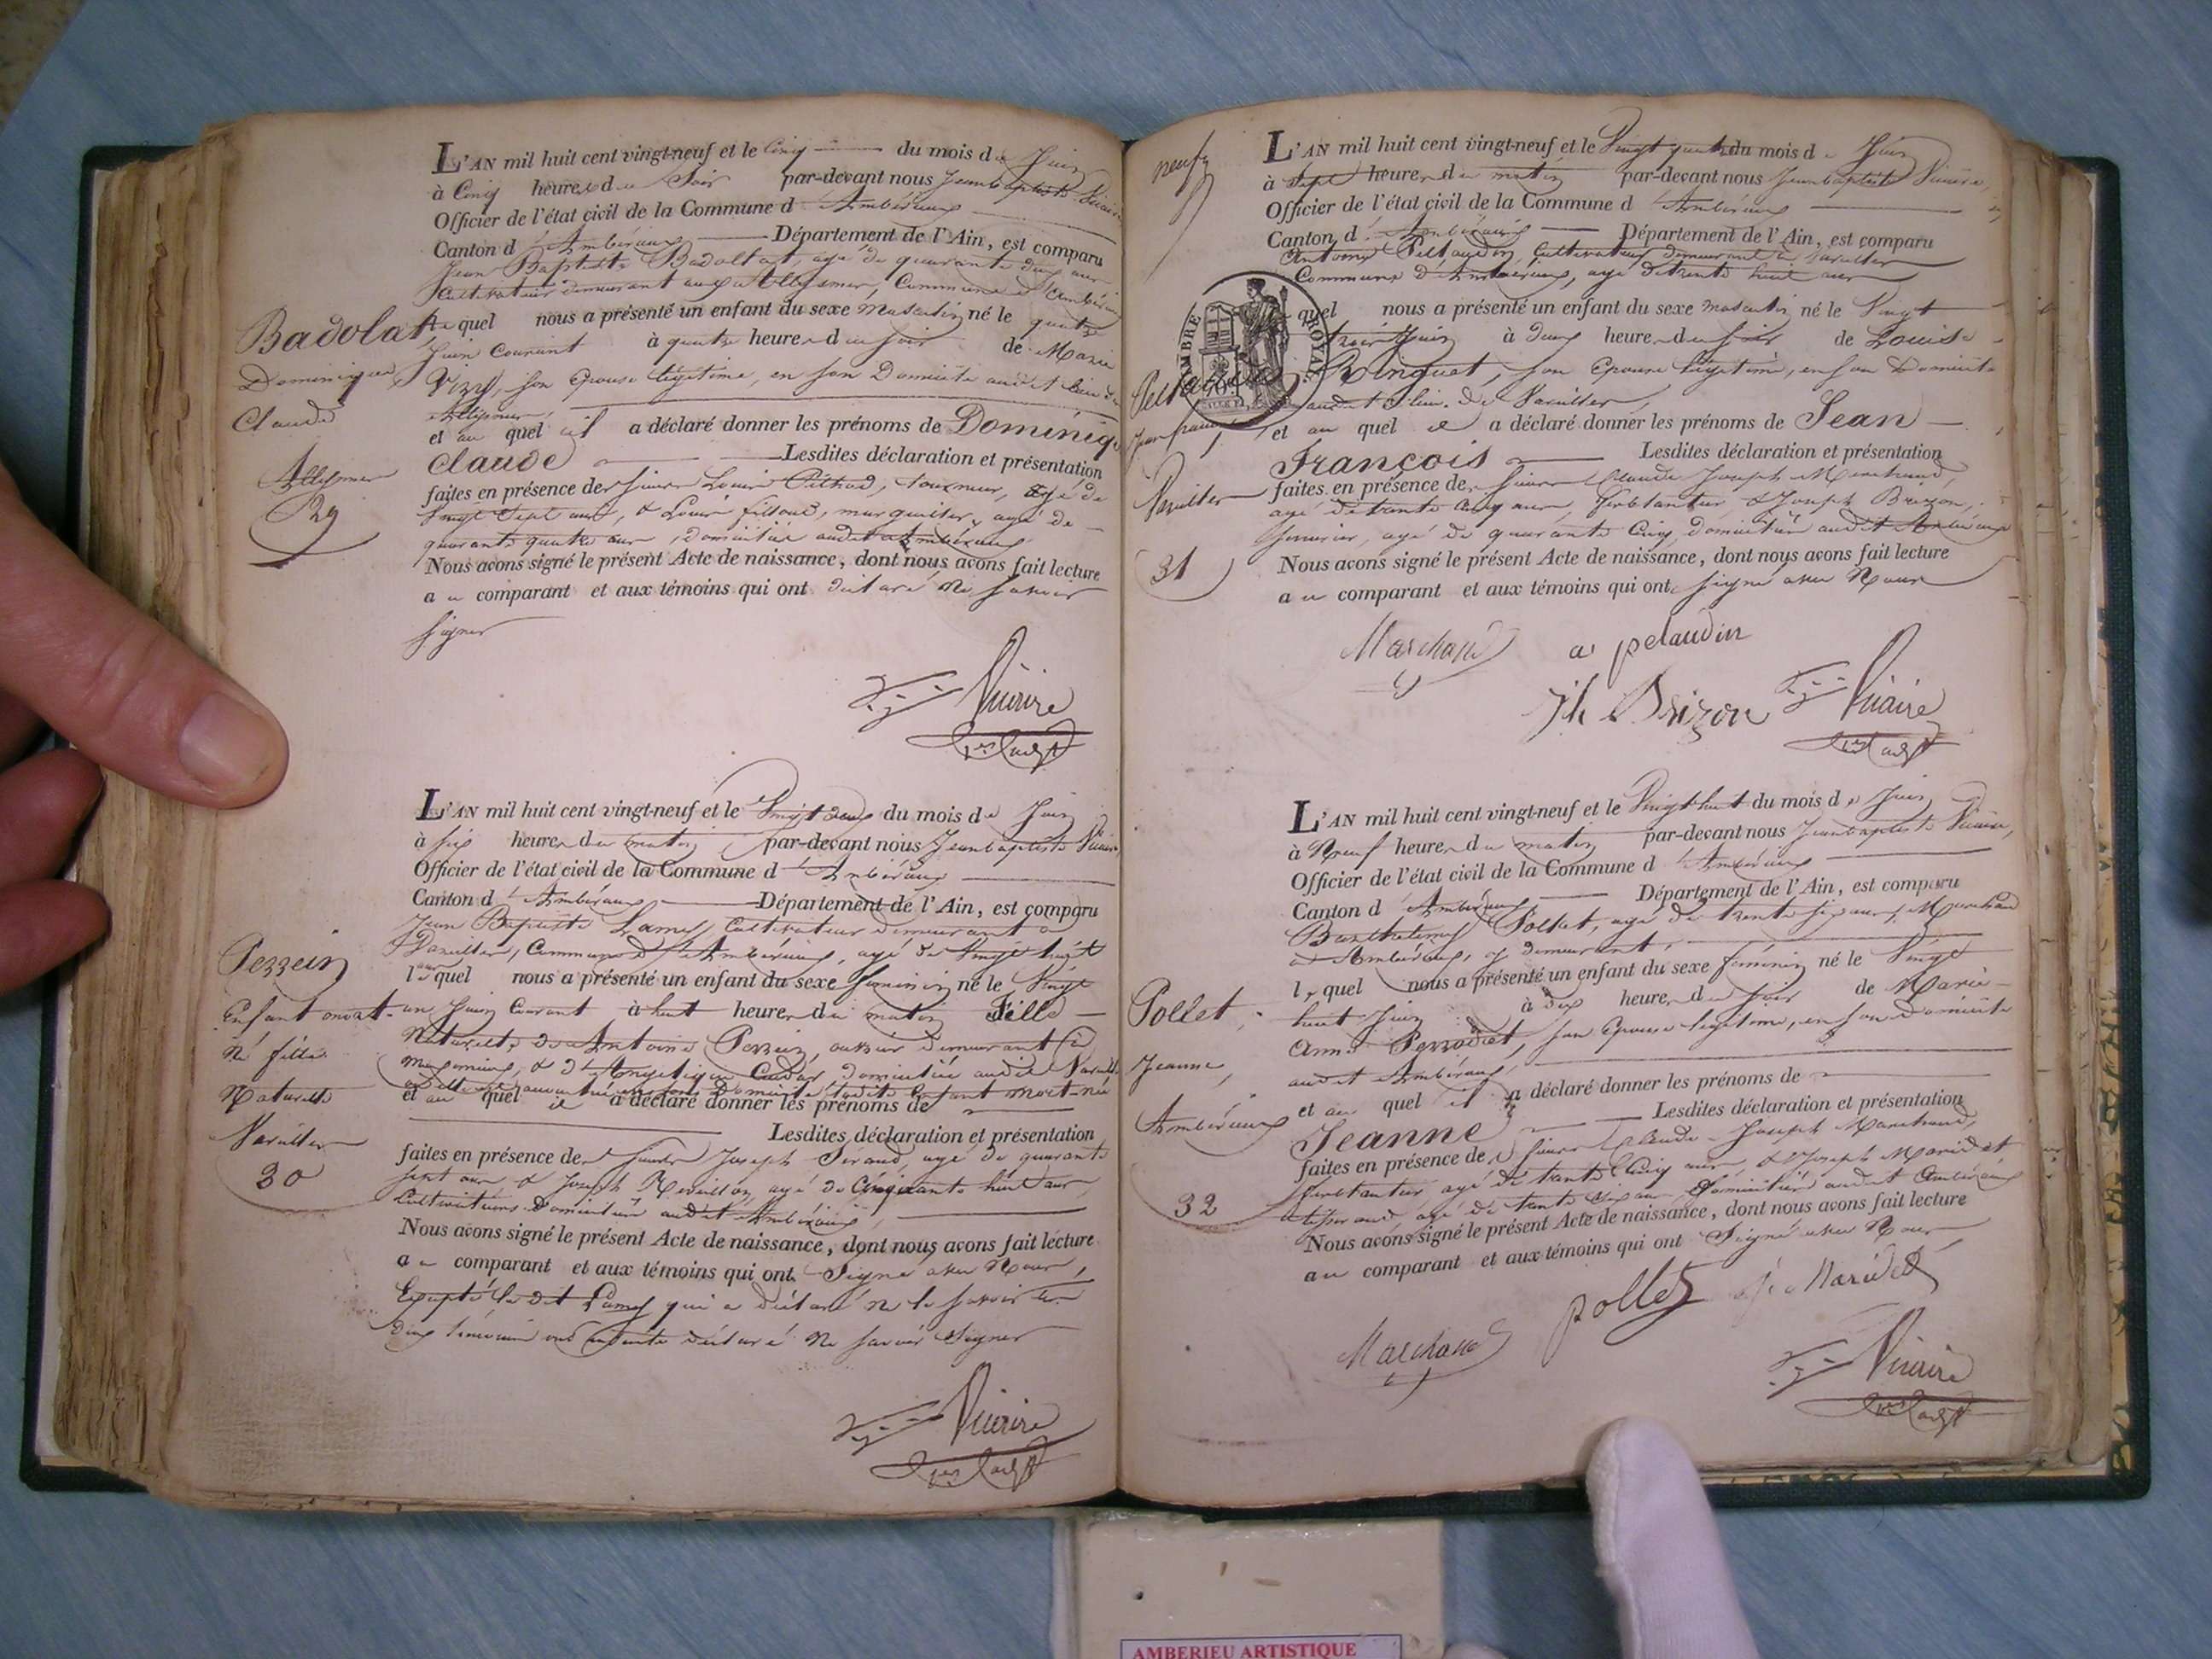 L'AN mil huit cent vingt-neuf et le Cinq du mois de Juin
à Cinq heures du Soir par-devant nous Jean baptiste Vicaire
Officier de l'état civil de la Commune d'Ambérieux
Canton d'Ambérieux Département de l'Ain, est comparu
Jean Baptiste Badollat, agé de quarante deux ans
Cultivateur demeurant au Allymes, Commune d'Ambérieux
le quel nous a présenté un enfant du sexe masculin né le quatre
Juin Courant à quatre heures du soir de Marie
son Epouse légitime, en son Domicile audit lieu
et au quel il a déclaré donner les prénoms de Dominique
Claude Lesdites déclaration et présentation
faites en présence des sieurs Louis tourneur, agé de
Vingt Sept ans, & Louis marguiller, agé de
quarante quatre ans, domiciliés audit Ambérieux
Nous avons signé le présent Acte de naissance, dont nous avons fait lecture
au comparant et aux témoins qui ont déclaré ne savoir
signer
Vicaire
Badolat
Dominique
Claude
29
L'AN mil huit cent vingt-neuf et le Vingt deux du mois de Juin
à six heures du matin par-devant nous Jean baptiste Vicaire
Officier de l'état civil de la Commune d'Ambérieux
Canton d'Ambérieux Département de l'Ain, est comparu
Jean Baptiste Lamy, Cultivateur demeurant à
Vareilles, Commune d'Ambérieux, agé de Vingt huit
ans
le quel nous a présenté un enfant du sexe feminin né le Vingt
un Juin Courant à huit heures du matin Fille
Naturelle de Antoine Perrein, demeurant à
& d'Angelique domiciliée audit
Enfant mort-né
et au quel il a déclaré donner les prénoms de
Lesdites déclaration et présentation
faites en présence des sieurs Joseph agé de quarante
sept ans & Joseph Reveillon, agé de Cinquante huit ans,
Cultivateurs Domiciliés audit Ambérieux,
Nous avons signé le présent Acte de naissance, dont nous avons fait lecture
au comparant et aux témoins qui ont Signé avec Nous,
Excepté le dit Lamy qui a déclaré ne le savoir
témoins ont ensuite déclaré Ne savoir Signer
Vicaire
Perrein
Enfant mort-
né fille
Naturelle
Vareilles
30
L'AN mil huit cent vingt-neuf et le Vingt quatre du mois de Juin
à Sept heures du matin par-devant nous Jean baptiste Vicaire,
Officier de l'état civil de la Commune d'Ambérieux
Canton d'Ambérieux Département de l'Ain, est comparu
Antoine Cultivateur demeurant à Vareilles
Commune d'Ambérieux, agé de trente huit ans
quel nous a présenté un enfant du sexe masculin né le Vingt
trois Juin à deux heures du soir de Louise
Ringuet, son Epouse légitime, en son Domicile
audit lieu de Vareilles,
et au quel il a déclaré donner les prénoms de Jean
François Lesdites déclaration et présentation
faites en présence des sieurs Claude Joseph Marchand,
agé de trente cinq ans, ferblantier & Joseph Brizon,
agé de quarante Cinq, domiciliés audit Ambérieux
Nous avons signé le présent Acte de naissance, dont nous avons fait lecture
au comparant et aux témoins qui ont signé avec Nous
Marchand a pelaudin
Jh Brizon Vicaire
neuf
TIMBRE ROYAL
Jean françois,
Vareilles
31
L'AN mil huit cent vingt-neuf et le Vingt huit du mois de Juin
à Neuf heures du matin par-devant nous Jean baptiste Vicaire,
Officier de l'état civil de la Commune d'Ambérieux
Canton d'Ambérieux Département de l'Ain, est comparu
Barthelemy Pollet, agé de trente six ans, Marchand
à Ambérieux, y demeurant,
le quel nous a présenté un enfant du sexe féminin né le Vingt
huit Juin à dix heures du soir de Marie
Anne Perrodet, son Epouse légitime, en son domicile
audit Ambérieux,
et au quel il a déclaré donner les prénoms de
Jeanne Lesdites déclaration et présentation
faites en présence des sieurs Claude Joseph Marchand,
ferblantier, agé de trente Cinq ans, & Joseph Maridet
tisserand agé de trente six ans, Domiciliés audit Ambérieux
Nous avons signé le présent Acte de naissance, dont nous avons fait lecture
au comparant et aux témoins qui ont Signé avec Nous,
pollet Maridet
Marchand
Vicaire
Pollet,
Jeanne,
Ambérieux
32
AMBERIEU ARTISTIQUE